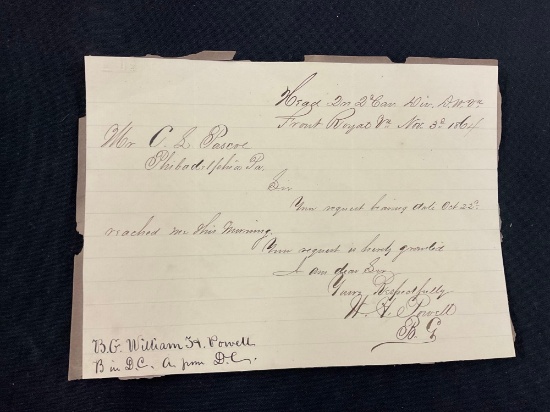 Head Qrs 2d Cav. Div. D. W. Va
Front Royal Va Nov. 3d 1864
Mr C. L Pascoe
Philadelphia Pa.
Sir
Your request bearing date Oct 22d
reached me this Morning.
Your request is hereby granted
I am dear Sir
Yours Respectfully
W. H. Powell
B. G
B.G. William H. Powell
B in D.C. A from D.C.